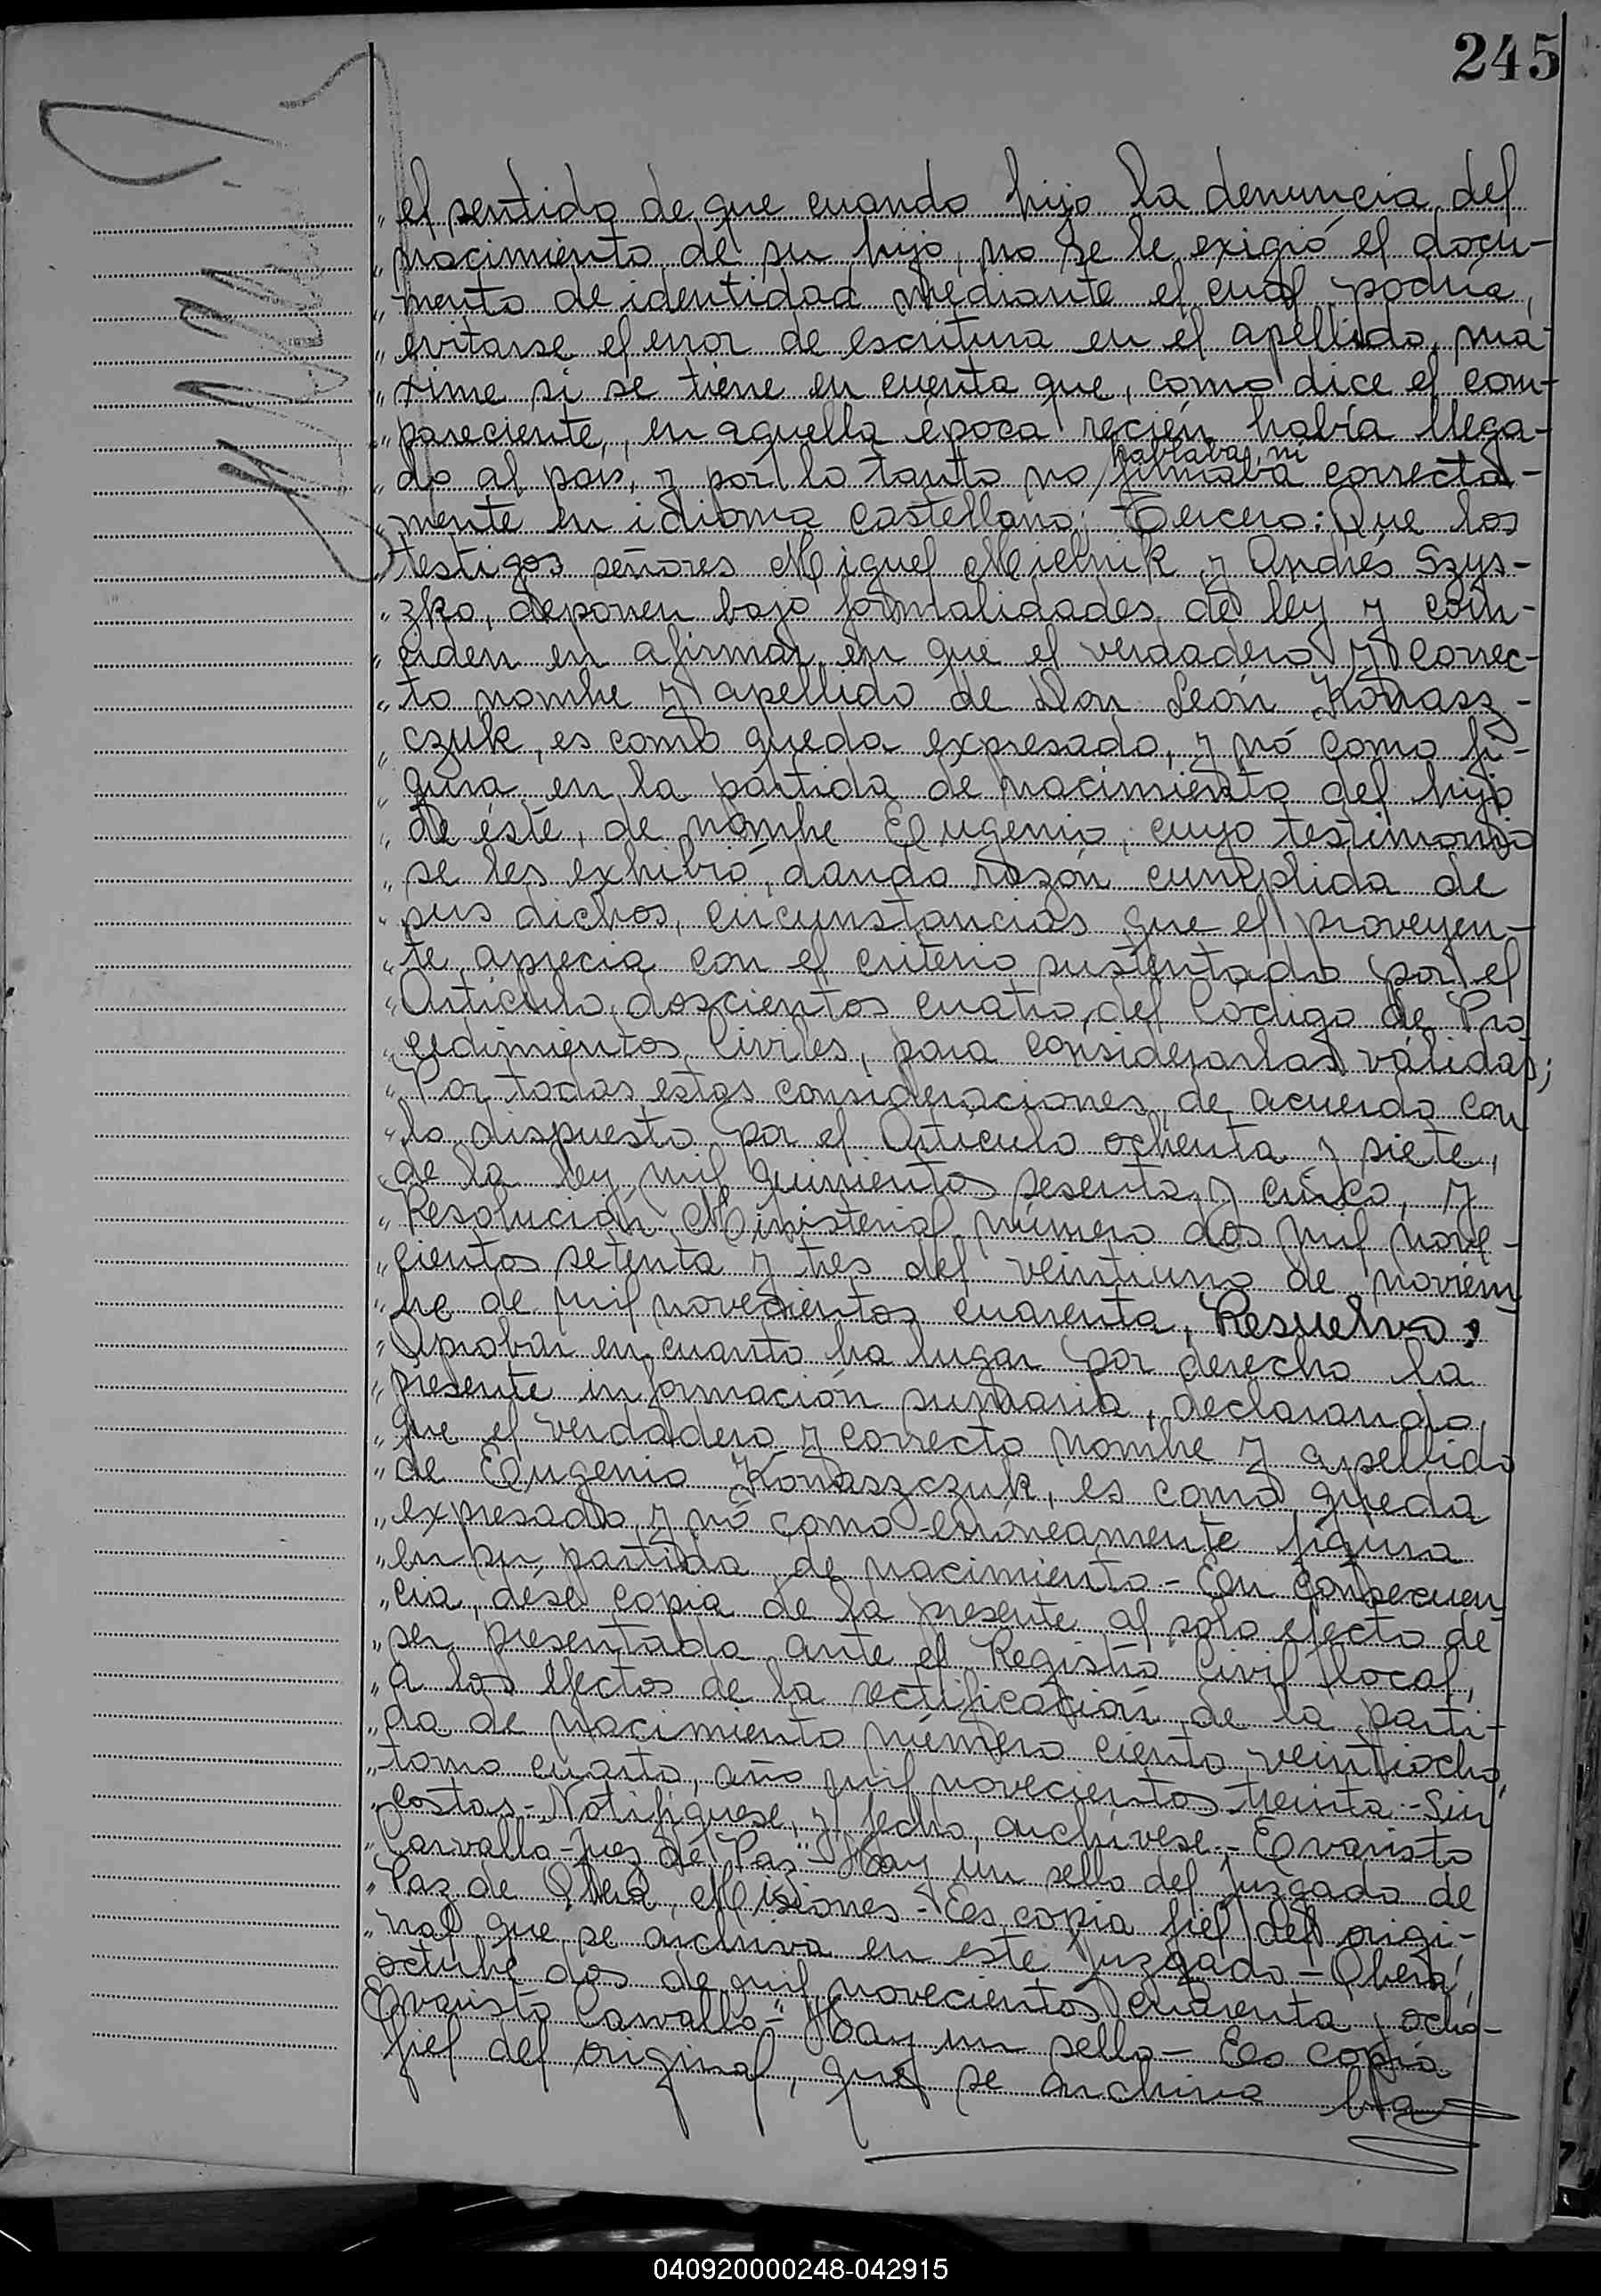 245
„ el sentido de que cuando hizo la denuncia del
„ nacimiento de su hijo, no se le exigió el docu-
„ mento de identidad mediante el cual podría,
„ evitarse el error de escritura en el apellido, má-
„ xime si se tiene en cuenta que, como dice el com-
„ pareciente, en aquella época recién había llega-
hablaba, ni
„ do al país, y por lo tanto no firmaba correcta-
„ mente en idioma castellano; Tercero: Que los
„ testigos señores Miguel Mielnik y Andrés Szys-
„ zko, deponen bajo formalidades de ley y coin-
„ ciden en afirmar en que el verdadero y correc-
„ to nombre y apellido de Don León Konasz-
„ czuk, es como queda expresado, y nó como fi-
„ gura en la partida de nacimiento del hijo
„ de éste, de nombre Eugenio, cuyo testimonio
„ se les exhibió, dando razón cumplida de
„ sus dichos, circunstancias que el proveyen-
„ te aprecia con el criterio sustentado por el
„ Artículo doscientos cuatro del Código de Pro
„ cedimientos Civiles, para considerarlas válidas;
„ Por todas estas consideraciones, de acuerdo con
„ lo dispuesto por el Artículo ochenta y siete,
„ de la ley mil quinientos sesenta y cinco, y
„ Resolución Ministerial número dos mil nove-
„ cientos setenta y tres del veintiuno de noviem
„ bre de mil novecientos cuarenta, Resuelvo:
„ Aprobar en cuanto ha lugar por derecho la
„ presente información sumaria, declarando
„ que el verdadero y correcto nombre y apellido
„ de Eugenio Konaszczuk, es como queda
„ expresado y nó como erróneamente figura
„ en su partida de nacimiento - En consecuen
„ cia, dése copia de la presente al solo efecto de
„ ser presentada ante el Registro Civil local,
„ a los efectos de la rectificación de la parti-
„ da de nacimiento número ciento veintiocho,
„ tomo cuarto, año mil novecientos treinta - Sin
„ costas - Notifíquese, y fecho, archívese.- Evaristo
„ Carvallo - Juez de Paz" - Hay un sello del Juzgado de
„ Paz de Oberá, Misiones - Es copia fiel del origi-
„ nal que se archiva en este Juzgado - Oberá,
octubre dos de mil novecientos cuarenta y ocho -
Evaristo Carvallo -" Hay un sello - Es copia
fiel del original, que se archiva
040920000248-042915